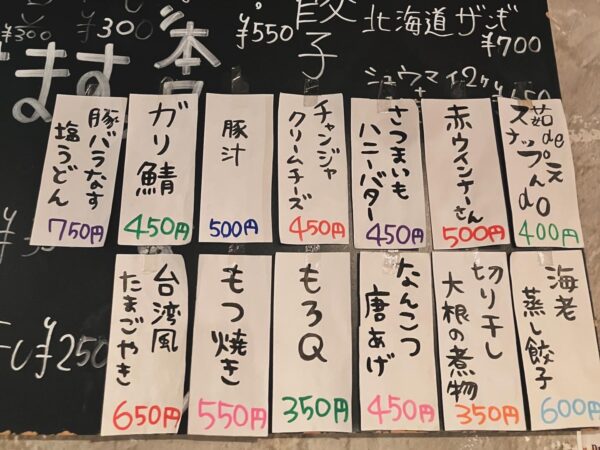 ¥300
¥300
¥550
餃子
北海道ザンギ
¥700
シュウマイ2ケ
ます
本日
茹de
スナップえんdo
400円
赤ウインナーさん
500円
さつまいも
ハニーバター
450円
チャンジャ
クリームチーズ
450円
豚汁
500円
ガリ鯖
450円
豚バラなす
塩うどん
750円
海老
蒸し餃子
600円
切り干し
大根の煮物
350円
なんこつ
唐あげ
450円
もろQ
350円
もつ焼き
550円
台湾風
たまごやき
650円
¥250